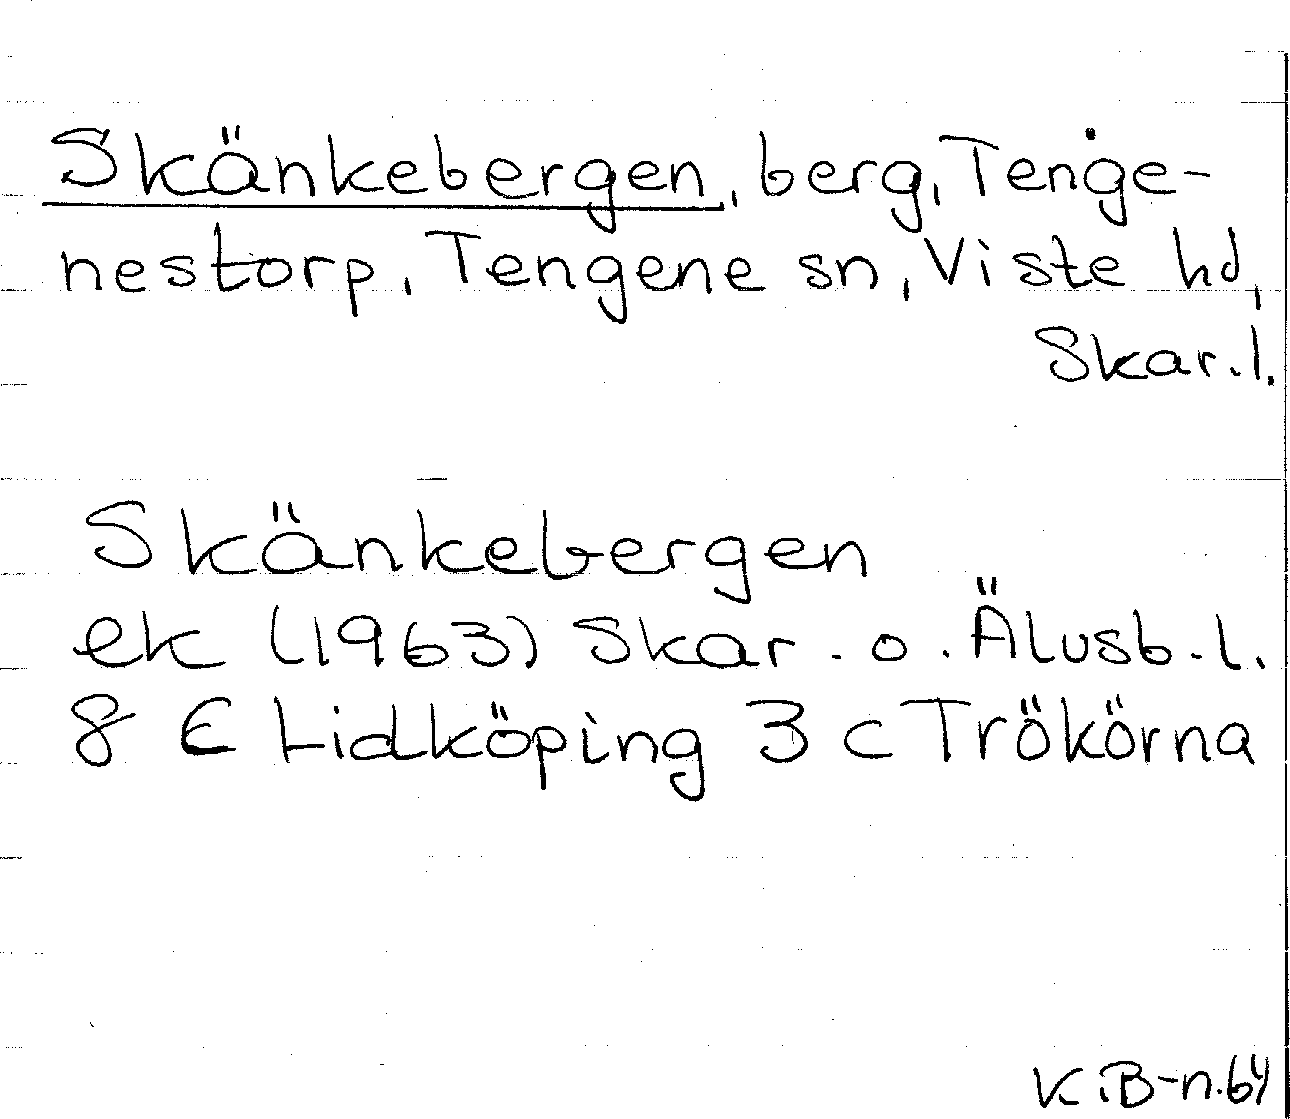 Skänkebergen, berg, Tenge-
nestorp, Tengene sn, Viste hd,
Skar.l.
Skänkebergen
ek (1963) Skar. o. Älvsb.l.
8 C Lidköping 3 c Trökörna
K iB-n.64